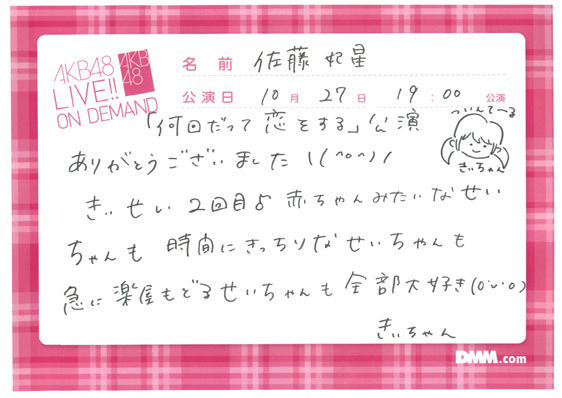 AKB48
LIVE!!
ON DEMAND
AKB
48
名前 佐藤妃星
公演日 10月27日 19:00 公演
「何回だって恋をする」公演
ついんてーる
きぃちゃん
ありがとうございました\(^o^)/
きぃせい2回目♂赤ちゃんみたいなせい
ちゃんも 時間にきっちりなせいちゃんも
急に楽屋もどるせいちゃんも 全部大好き(o'ν'o)
きぃちゃん
DMM.com